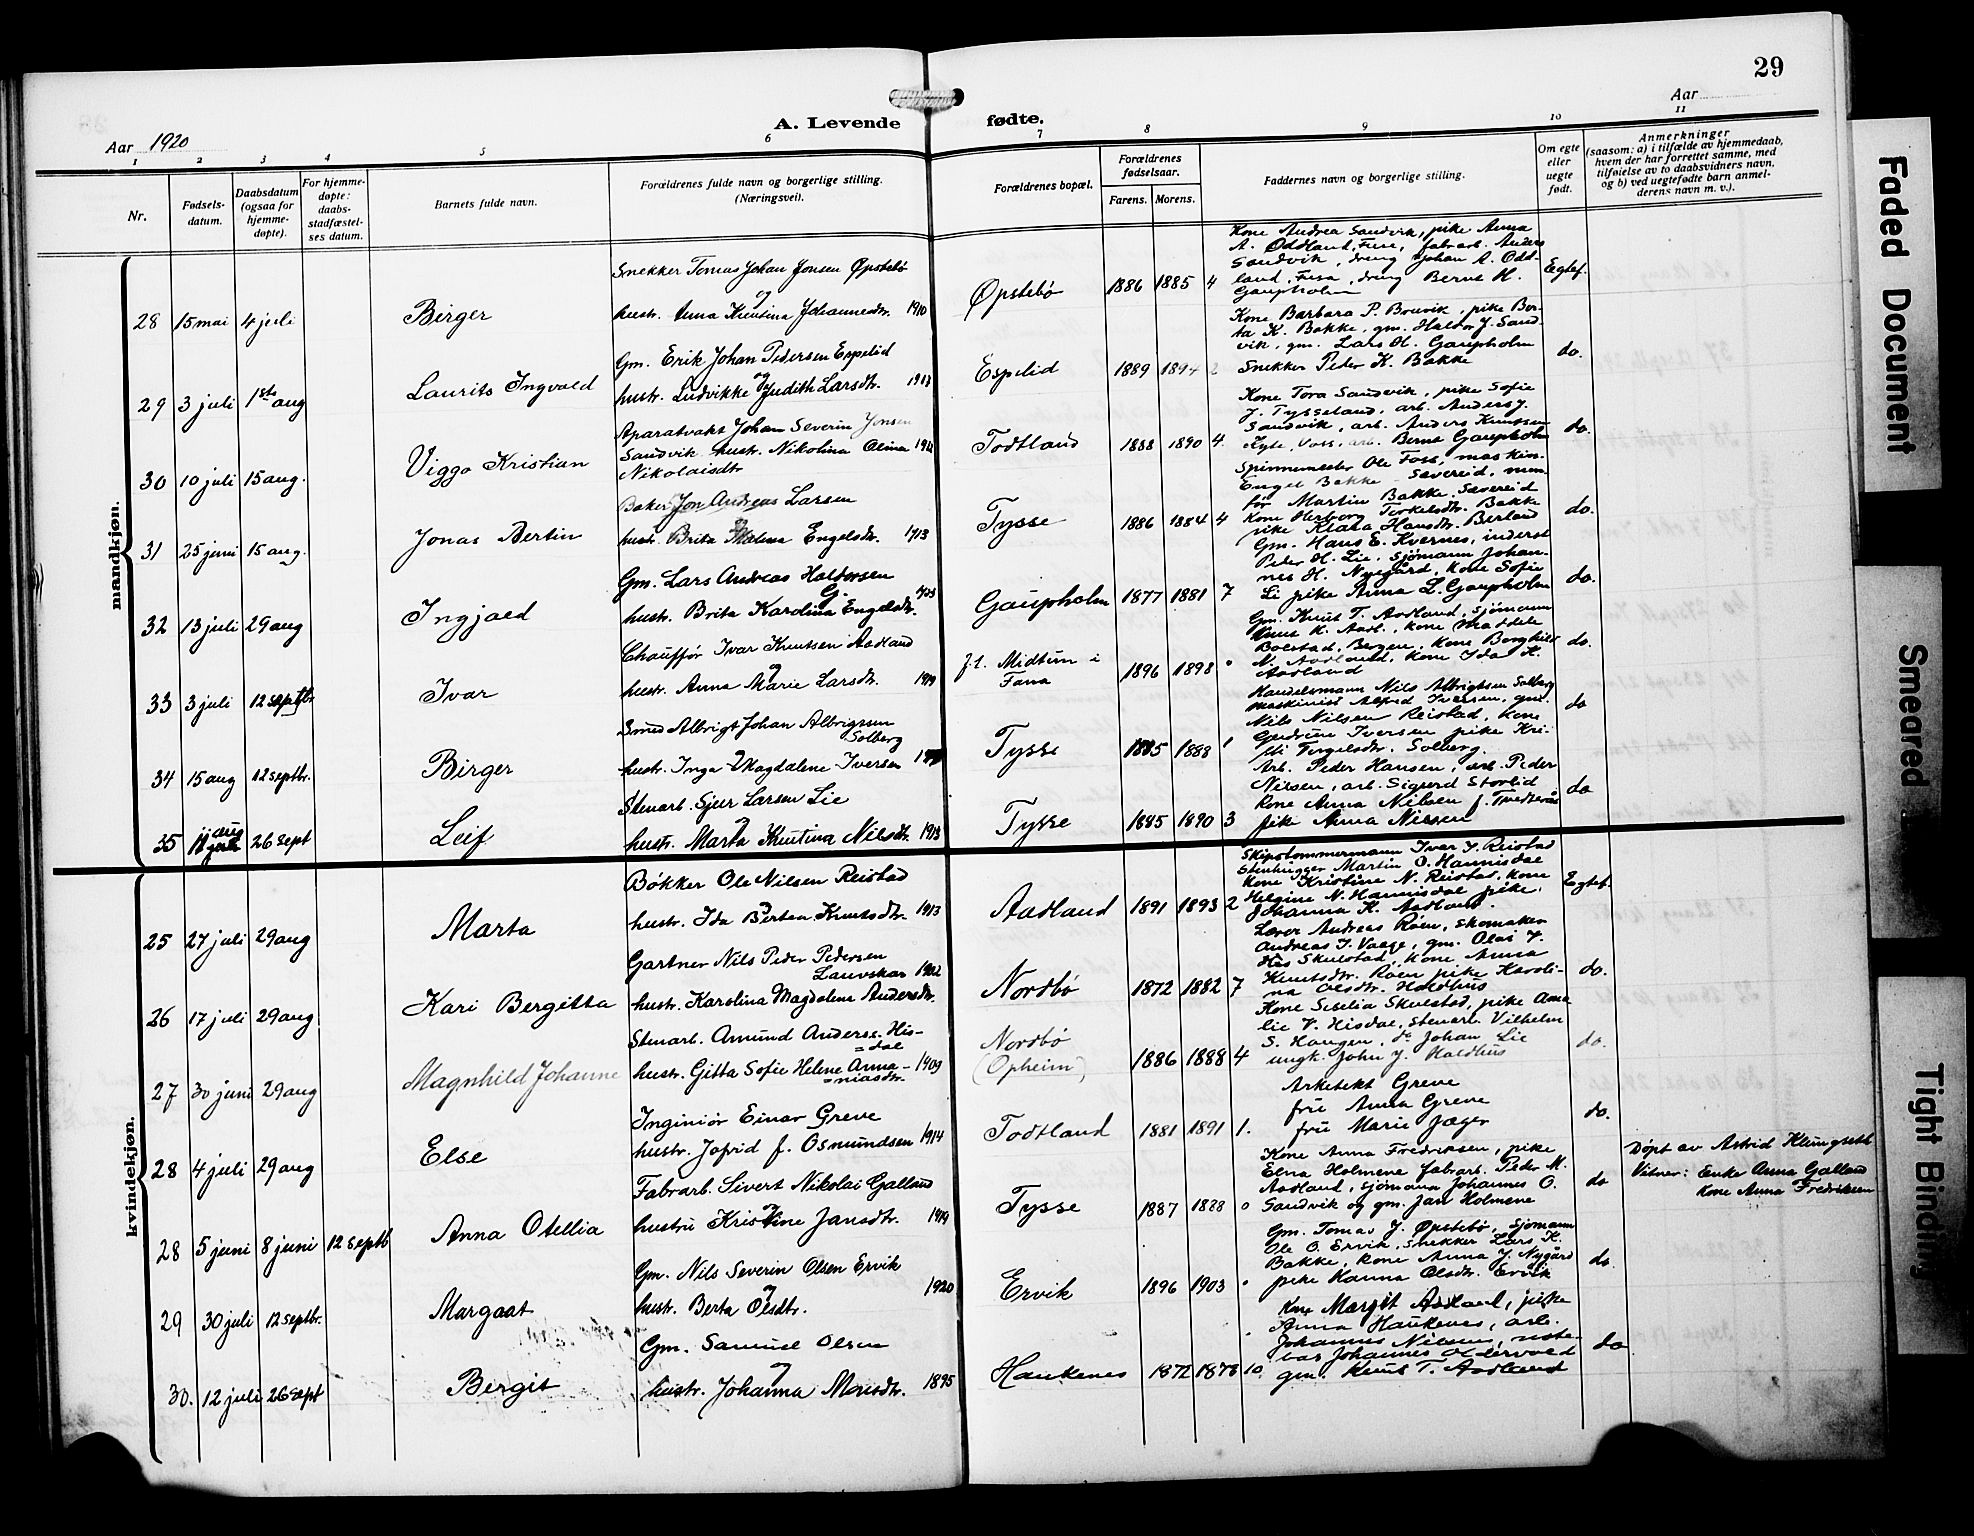 29
Aar 1920
A. Levende fødte.
Aar
1 2 3 4 5 6 7 8 9 10 11
Nr.
Fødsels-
datum.
Daabsdatum
(ogsaa for
hjemme-
døpte).
For hjemme-
døpte:
daabs-
stadfæstel-
ses datum.
Barnets fulde navn.
Forældrenes fulde navn og borgerlige stilling.
(Næringsvei).
Forældrenes bopæl.
Forældrenes
fødselsaar.
Farens. Morens.
Faddernes navn og borgerlige stilling.
Om egte
eller
uegte
født.
Anmerkninger
(saasom: a) i tilfælde av hjemmedaab,
hvem der har forrettet samme, med
tilføielse av to daabsvidners navn,
og b) ved uegtefødte barn anmel-
derens navn m. v.).
mandkjøn.
28 15 mai 4 juli Birger
Snekker Tomas Johan Jonsen Øpstebø
og
hustr. Anna Knutina Johannesdtr. 1910
Øpstebø 1886 1885 4
Kone Andrea Sandvik, pike Anna
A. Oddland, Fusa, fabrarb. Anders
Sandvik, dreng Johan A. Odd-
land, Fusa, dreng Bernt H.
Gaupholm
Egtef.
29 3 juli 1ste aug Laurits Ingvald
Gm. Erik Johan Pedersen Espelid
og
hustr. Ludvikke Judith Larsdtr. 1913
Espelid 1889 1894 2
Kone Barbara P. Bruvik, pike Ber-
ta K. Bakke, gm. Haldor J. Sand-
vik, gm. Lars H. Gaupholm
Snekker Peder K. Bakke
do.
30 10 juli 15 aug. Viggo Kristian
Aparatvakt Johan Severin Jonsen
Sandvik hustr. Nikolina Olina
Nikolaisdtr
Todtland 1888 1890 4
Kone Tora Sandvik, pike Sofie
J. Tysseland, arb. Anders J.
Sandvik, arb. Anders Knutsen
Kyte, Voss, arb. Bernt Gaupholm
do.
31 25 juni 15 aug. Jonas Bertin
Baker Jon Andreas Larsen
og
hustr. Brita Malena Engelsdtr. 1913
Tysse 1886 1884 4
Spinnemester Ole Foss, maskin.
Engel Bakke Sævereid, mon-
tør Martin Bakke Sævereid
Kone Herborg Torkelsdtr. Bakke
pike Klara Hansdtr. Berland
do.
32 13 juli 29 aug Ingjald
Gm. Lars Andreas Haldorsen
G.
hustr. Brita Karolina Engelsdtr.
Gaupholm 1877 1881 7
Gm. Hans E. Kvernes, inderst
Peder H. Lie, sjømann Johan-
nes H. Nygård, kone Sofie
Li pike Anna L. Gaupholm
do.
33 3 juli 12 septbr Ivar
Chauffør Ivar Knutsen Aadland
og
hustr. Anna Marie Larsdtr. 1919
f.t. Midttun i
Fana
1896 1898
Gm. Knut T. Aadland, sjømann
Knut K. Aadl., kone Maddele
Bolstad, Bergen, Kone Borghild
N. Aadland, kone Ida K.
Aadland
do.
34 15 aug 12 septbr. Birger
Smed Albrigt Johan Albrigtsen
Solberg
hustr. Inga Magdalene Iversen
Tysse 1885 1888 1
Handelsmann Nils Albrigtsen Solberg
maskinist Alfred Iversen, gm.
Nils Nilsen Reistad, kone
Gudrun Iversen pike Kri-
sti Torgelsdtr. Solberg.
do
35 11 aug 26 sept Leif
Stenarb. Sjur Larsen Lie
og
hustr. Marta Knutina Nilsdtr. 1913
Tysse 1885 1890 3
Arb. Peder Hansen, arb. Peder
Nilsen, arb. Sigurd Storlid
Kone Anna Nilsen
pike Anna Nilsen
do
kvindekjøn.
25 27 juli 29 aug Marta
Bøkker Ole Nilsen Reistad
og
hustr. Ida Bertea Knutsdtr. 1913
Aadland 1891 1893 2
Skipstømmermann Ivar J. Reistad
Stenhugger Martin O. Hannisdal
Kone Kristine N. Reistad, kone
Helgine N. Hannisdal pike
Johanna K. Aadland.
Egtef.
26 17 juli 29 aug Kari Bergitta
Gartner Nils Peder Pedersen
Lauvskar 1902
hustr. Karolina Magdalena Andersdtr.
Nordbø 1872 1882 7
Lærer Andreas Røen, skomaker
Andreas I. Vaage, gm. Olai J.
Skulstad, kone Anna
Knutsdtr. Røen pike Karoli-
na Olsdtr. Holdhus
do.
27 30 juni 29 aug Magnhild Johanne
Stenarb. Amund Anders. His-
=dal
hustr. Gitta Sofie Helene Anna- 1909
=niasdtr.
Nordbø
(Opheim)
1886 1888 4
Kone Siselia Skulstad, pike Ama
lie V. Hisdal, stenarb. Vilhelm
S. Haugen, do Johan Lie
ungk. John J. Holdhus
do.
28 4 juli 29 aug Else
Inginiør Einar Greve
hustr. Jofrid f. Osmundsen 1914
Todtland 1881 1891 1.
Arkitekt Greve
fru Anna Greve
fru Marie Jæger
do.
28 5 juni 8 juni 12 septb Anna Otellia
Fabrarb. Sivert Nikolai Galland
og
hustru Kristine Jansdtr. 1919
Tysse 1887 1888 0
Kone Anna Fredriksen, pike
Elna Holmene fabrarb. Peder M.
Aadland, sjømann Johannes O.
Sandvik og gm. Jan Holmene
do
Døpt av Astrid Klungseth
Vitner: Enke Anna Galland
Kone Anna Fredriksen
29 30 juli 12 septbr. Margaat
Gm. Nils Severin Olsen Ervik
og
hustr. Berta Olsdtr. 1920
Ervik 1896 1903
Gm. Tomas J. Øpstebø, sjømann
Ole O. Ervik, snekker Lars K.
Bakke, kone Anna J. Nygård
pike Hanna Olsdtr. Ervik
do.
30. 12 juli 26 sept Bergit
Gm. Samuel Olsen
og
hustr. Johanna Monsdtr. 1895
Haukenes 1872 1876 10.
Kone Margit Aadland, pike
Anna Haukenes, arb.
Johannes Nilsen, note-
bas Johannes Oldervold
gm. Knut T. Aadland
do
Faded Document
Smeared
Tight Binding